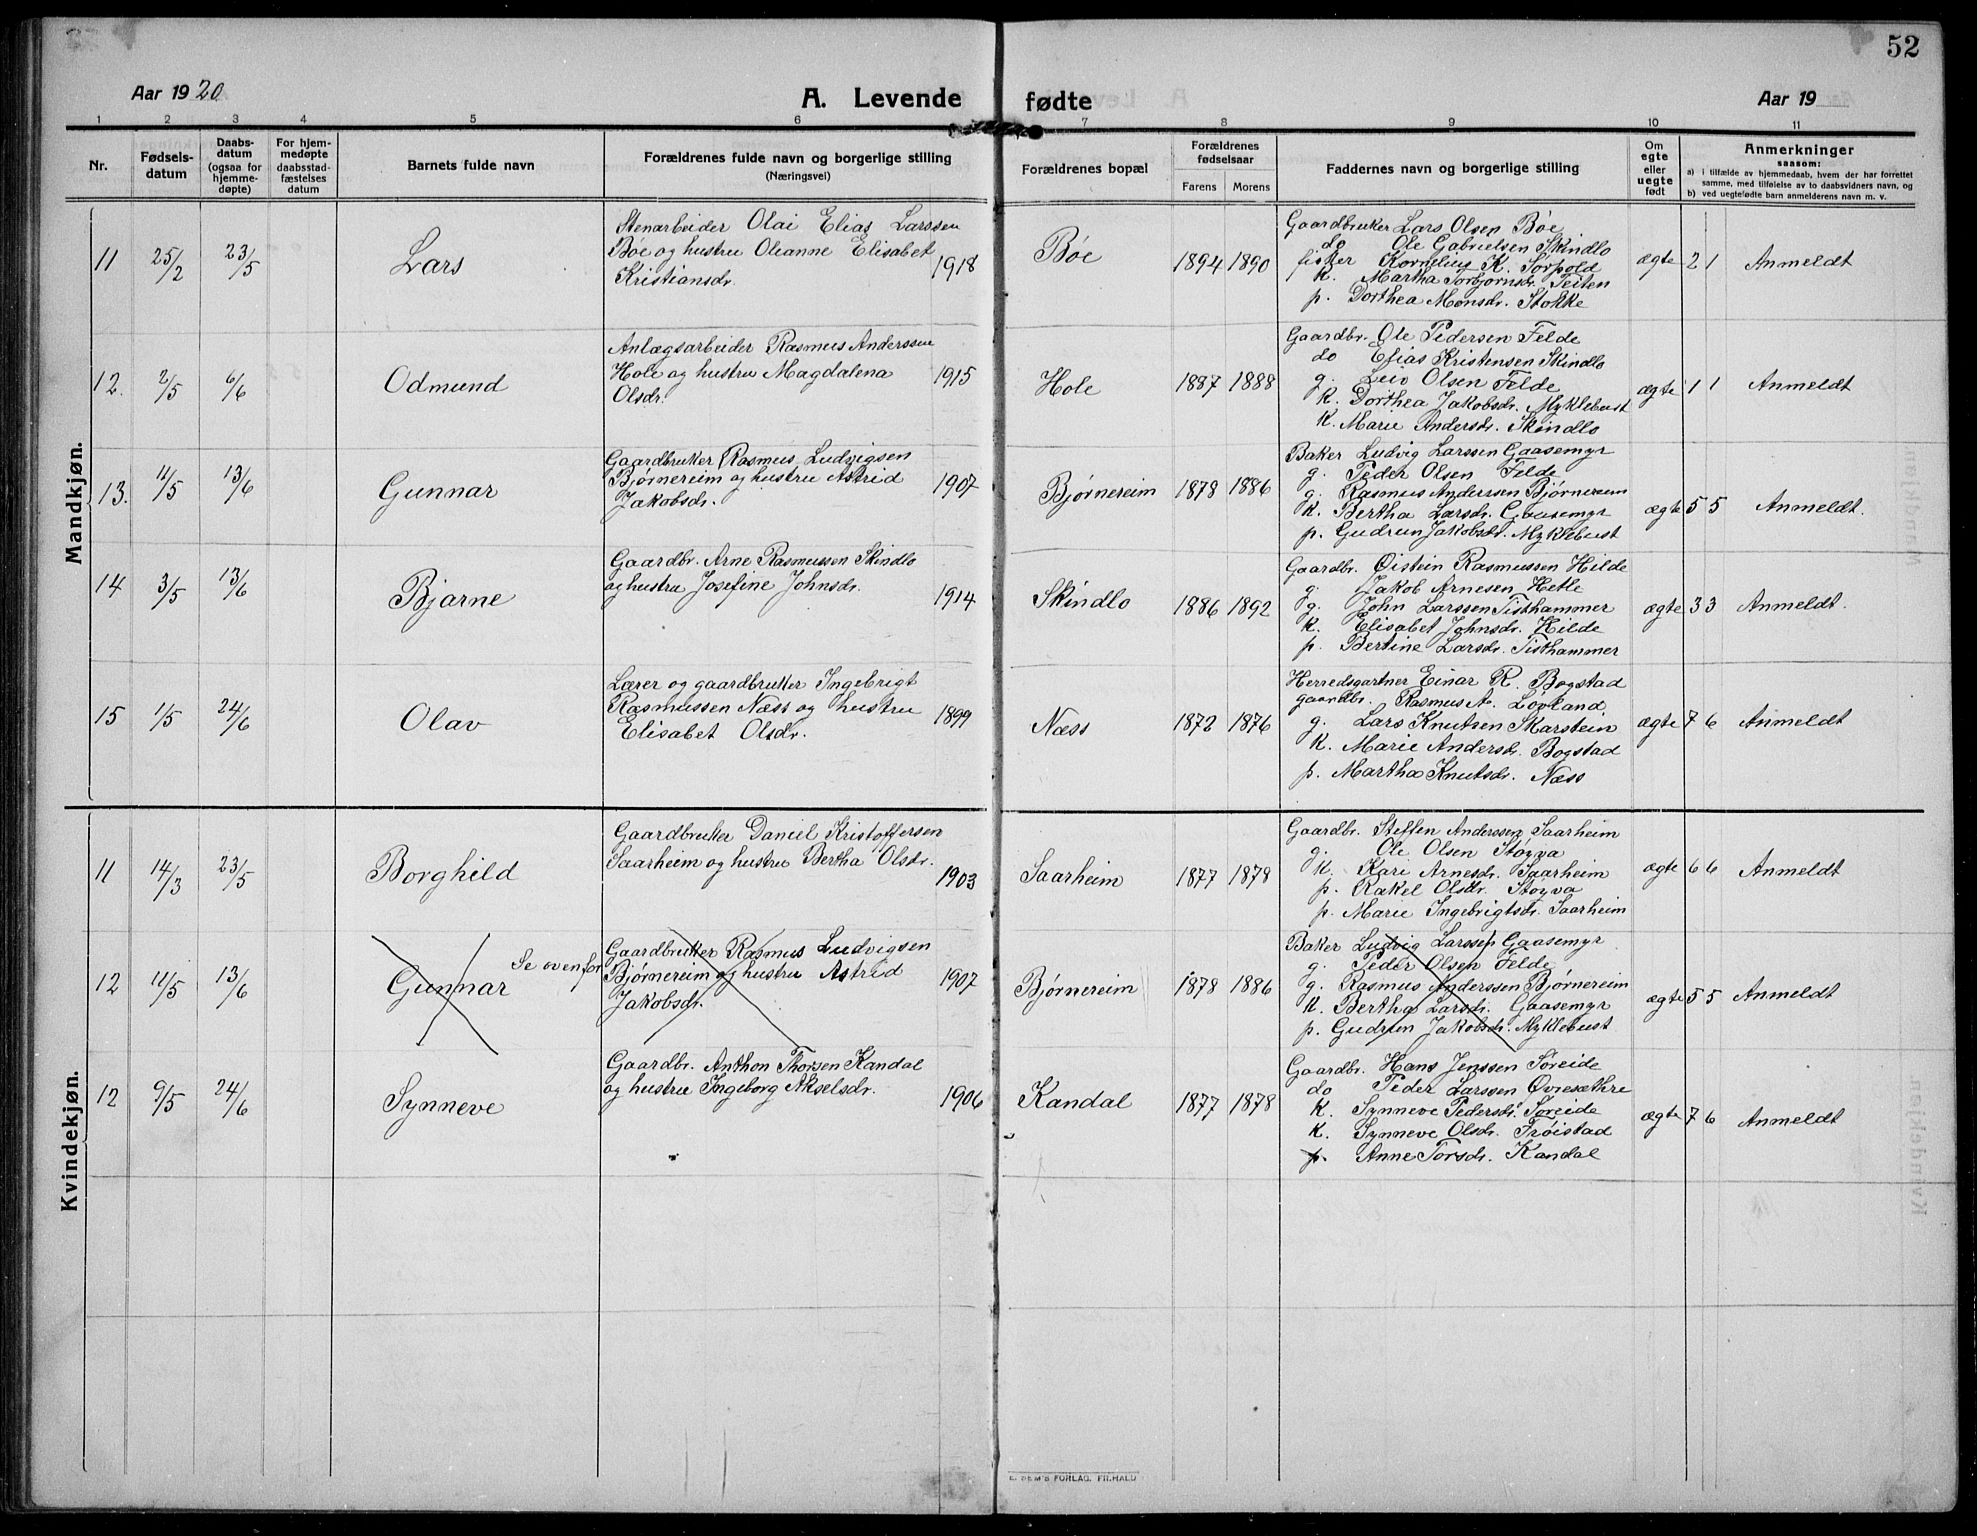 52
Aar 1920
A. Levende
fødte
Aar 19
1 2 3 4 5 6 7 8 9 10 11
Nr.
Fødsels-
datum
Daabs-
datum
(ogsaa for
hjemme-
døpte)
For hjem-
medøpte
daabsstad-
fæstelses
datum
Barnets fulde navn
Forældrenes fulde navn og borgerlige stilling
(Næringsvei)
Forældrenes bopæl
Forældrenes
fødselsaar
Farens Morens
Faddernes navn og borgerlige stilling
Om
egte
eller
uegte
født
Anmerkninger
saasom:
a) i tilfælde av hjemmedaab, hvem der har forrettet
samme, med tilføielse av to daabsvidners navn, og
b) ved uegtefødte barn anmelderens navn m. v.
Mandkjøn.
11 25/2 23/5 Lars
Stenarbeider Olai Elias Larssen
Bøe og hustru Oleanne Elisabet
Kristiansdr.
1918
Bøe 1894 1890
Gaardbruker Lars Olsen Bøe
do Ole Gabrielsen Skindlo
fisker Kornelius K. Sørpold
k. Martha Torbjørnsdr. Teiten
p. Dorthea Monsdr. Stokke
ægte 2 1 Anmeldt
12. 2/5 6/6 Odmund
Anlægsarbeider Rasmus Anderssen
Hole og hustru Magdalena
Olsdr.
1915
Hole 1887 1888
Gaardbr. Ole Pedersen Felde
do Elias Kristensen Skindlo
g. Leiv Olsen Felde
k. Dorthea Jakobsdr. Myklebust
k. Marie Andersdr. Skindlo
ægte 1 1 Anmeldt
13. 11/5 13/6 Gunnar
Gaardbruker Rasmus Ludvigsen
Bjørnereim og hustru Astrid
Jakobsdr.
1907
Bjørnereim 1878 1886
Baker Ludvig Larssen Gaasemyr
g. Peder Olsen Felde
g. Rasmus Anderssen Bjørnereim
k. Bertha Larsdr. Gaasemyr
p. Gudrun Jakobsdr. Myklebust
ægte 5 5 Anmeldt.
14 3/5 13/6 Bjarne
Gaardbr. Arne Rasmussen Skindlo
og hustru Josefine Johnsdr.
1914
Skindlo 1886 1892
Gaardbr. Øistein Rasmussen Hilde
g. Jakob Arnesen Hetle
g. John Larssen Tisthammer
k. Elisabet Johnsdr. Hilde
p. Bertine Larsdr. Tisthammer
ægte 3 3 Anmeldt.
15 1/5 24/6 Olav
Lærer og gaardbruker Ingebrigt
Rasmussen Næss og hustru
Elisabet Olsdr.
1899
Næss 1872 1876
Herredsgartner Einar R. Bogstad
gaardbr. Rasmus A. Lovland
g. Lars Knutsen Skarstein
k. Marie Andersdr. Bogstad
p. Martha Knutsdr. Næss
ægte 7 6 Anmeldt
Kvindekjøn.
11 14/3 23/5 Borghild
Gaardbruker Daniel Kristoffersen
Saarheim og hustru Bertha Olsdr.
1903
Saarheim 1877 1878
Gaardbr. Steffen Anderssen Saarheim
g. Ole Olsen Støyva
k. Kari Arnesdr. Saarheim
p. Rakel Olsdr. Støyva
p. Marie Ingebrigtsdr. Saarheim
ægte 6 6 Anmeldt
12 11/5 13/6 Gunnar Se ovenfor
Gaardbruker Rasmus Ludvigsen
Bjørnereim og hustru Astrid
Jakobsdr.
1907
Bjørnereim 1878 1886
Baker Ludvig Larssen Gaasemyr
g. Peder Olsen Felde
g. Rasmus Anderssen Bjørnereim
k. Bertha Larsdr. Gaasemyr
p. Gudrun Jakobsdr. Myklebust
ægte 5 5 Anmeldt
12 9/5 24/6 Synneve
Gaardbr. Anthon Thorsen Kandal
og hustru Ingeborg Akselsdr.
1906
Kandal 1877 1878
Gaardbr. Hans Jenssen Søreide
do Peder Larssen Øvresæthre
k. Synneve Pedersdr. Søreide
k. Synneve Olsdr. Trøistad
p. Anne Torsdr. Kandal
ægte 7 6 Anmeldt
E. SEM'S FORLAG, FR.HALD